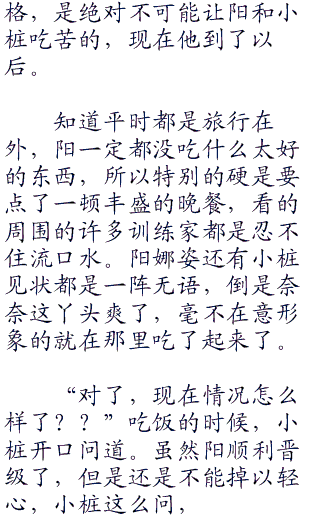 格，是绝对不可能让阳和小
桩吃苦的，现在他到了以
后。
知道平时都是旅行在
外，阳一定都没吃什么太好
的东西，所以特别的硬是要
点了一顿丰盛的晚餐，看的
周围的许多训练家都是忍不
住流口水。阳娜姿还有小桩
见状都是一阵无语，倒是奈
奈这丫头爽了，毫不在意形
象的就在那里吃了起来了。
“对了，现在情况怎么
样了？？”吃饭的时候，小
桩开口问道。虽然阳顺利晋
级了，但是还是不能掉以轻
心，小桩这么问，